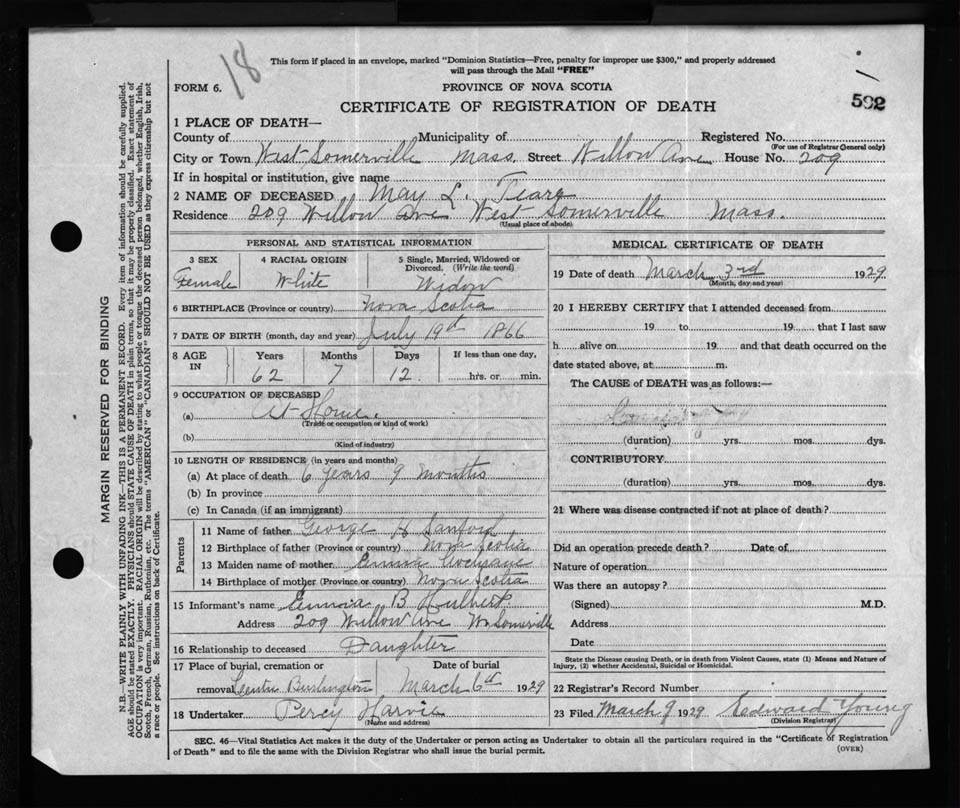 18
This form if placed in an envelope, marked "Dominion Statistics—Free, penalty for improper use $300," and properly addressed
will pass through the Mail "FREE"
FORM 6.
PROVINCE OF NOVA SCOTIA
CERTIFICATE OF REGISTRATION OF DEATH
502
1 PLACE OF DEATH—
County of Municipality of Registered No.
(For use of Registrar General only)
City or Town West Somerville Mass. Street Willow Ave House No. 209
If in hospital or institution, give name
2 NAME OF DECEASED May L.
Residence 209 Willow Ave West Somerville Mass.
(Usual place of abode)
PERSONAL AND STATISTICAL INFORMATION
3 SEX Female
4 RACIAL ORIGIN White
5 Single, Married, Widowed or Divorced. (Write the word) Widow
6 BIRTHPLACE (Province or country) Nova Scotia
7 DATE OF BIRTH (month, day and year) July 19 1866
8 AGE IN
Years Months Days If less than one day,
62 7 12 hrs. or min.
9 OCCUPATION OF DECEASED
(a) At Home.
(Trade or occupation or kind of work)
(b)
(Kind of industry)
10 LENGTH OF RESIDENCE (in years and months)
(a) At place of death 6 years 9 months
(b) In province
(c) In Canada (if an immigrant)
Parents
11 Name of father George H Sanford
12 Birthplace of father (Province or country) Nova Scotia
13 Maiden name of mother Emma Cochrane
14 Birthplace of mother (Province or country) Nova Scotia
15 Informant's name Emma B. Hulbert
Address 209 Willow Ave W Somerville
16 Relationship to deceased Daughter
17 Place of burial, cremation or removal Centre Burlington
Date of burial March 6 1929
18 Undertaker Percy Harvie
(Name and address)
MEDICAL CERTIFICATE OF DEATH
19 Date of death March 3rd 1929
(Month, day and year)
20 I HEREBY CERTIFY that I attended deceased from
19 to 19 , that I last saw
h alive on 19 and that death occurred on the
date stated above, at m.
The CAUSE of DEATH was as follows:—
(duration) yrs. mos. dys.
CONTRIBUTORY
(duration) yrs. mos. dys.
21 Where was disease contracted if not at place of death?
Did an operation precede death? Date of
Nature of operation
Was there an autopsy?
(Signed) M.D.
Address
Date
State the Disease causing Death, or in death from Violent Causes, state (1) Means and Nature of
Injury, (2) whether Accidental, Suicidal or Homicidal.
22 Registrar's Record Number
23 Filed March 9 1929 Edward Young
(Division Registrar)
SEC. 46—Vital Statistics Act makes it the duty of the Undertaker or person acting as Undertaker to obtain all the particulars required in the "Certificate of Registration
of Death" and to file the same with the Division Registrar who shall issue the burial permit.
(OVER)
MARGIN RESERVED FOR BINDING
N.B.—WRITE PLAINLY WITH UNFADING INK—THIS IS A PERMANENT RECORD. Every item of information should be carefully supplied.
AGE should be stated EXACTLY. PHYSICIANS should STATE CAUSE OF DEATH in plain terms, so that it may be properly classified. Exact statement of
OCCUPATION is very important. RACIAL ORIGIN will be described by stating to what people or tongue the deceased person belonged, whether English, Irish,
Scotch, French, German, Russian, Ruthenian, etc. The terms "AMERICAN" or "CANADIAN" SHOULD NOT BE USED as they express citizenship but not
a race or people. See instructions on back of Certificate.